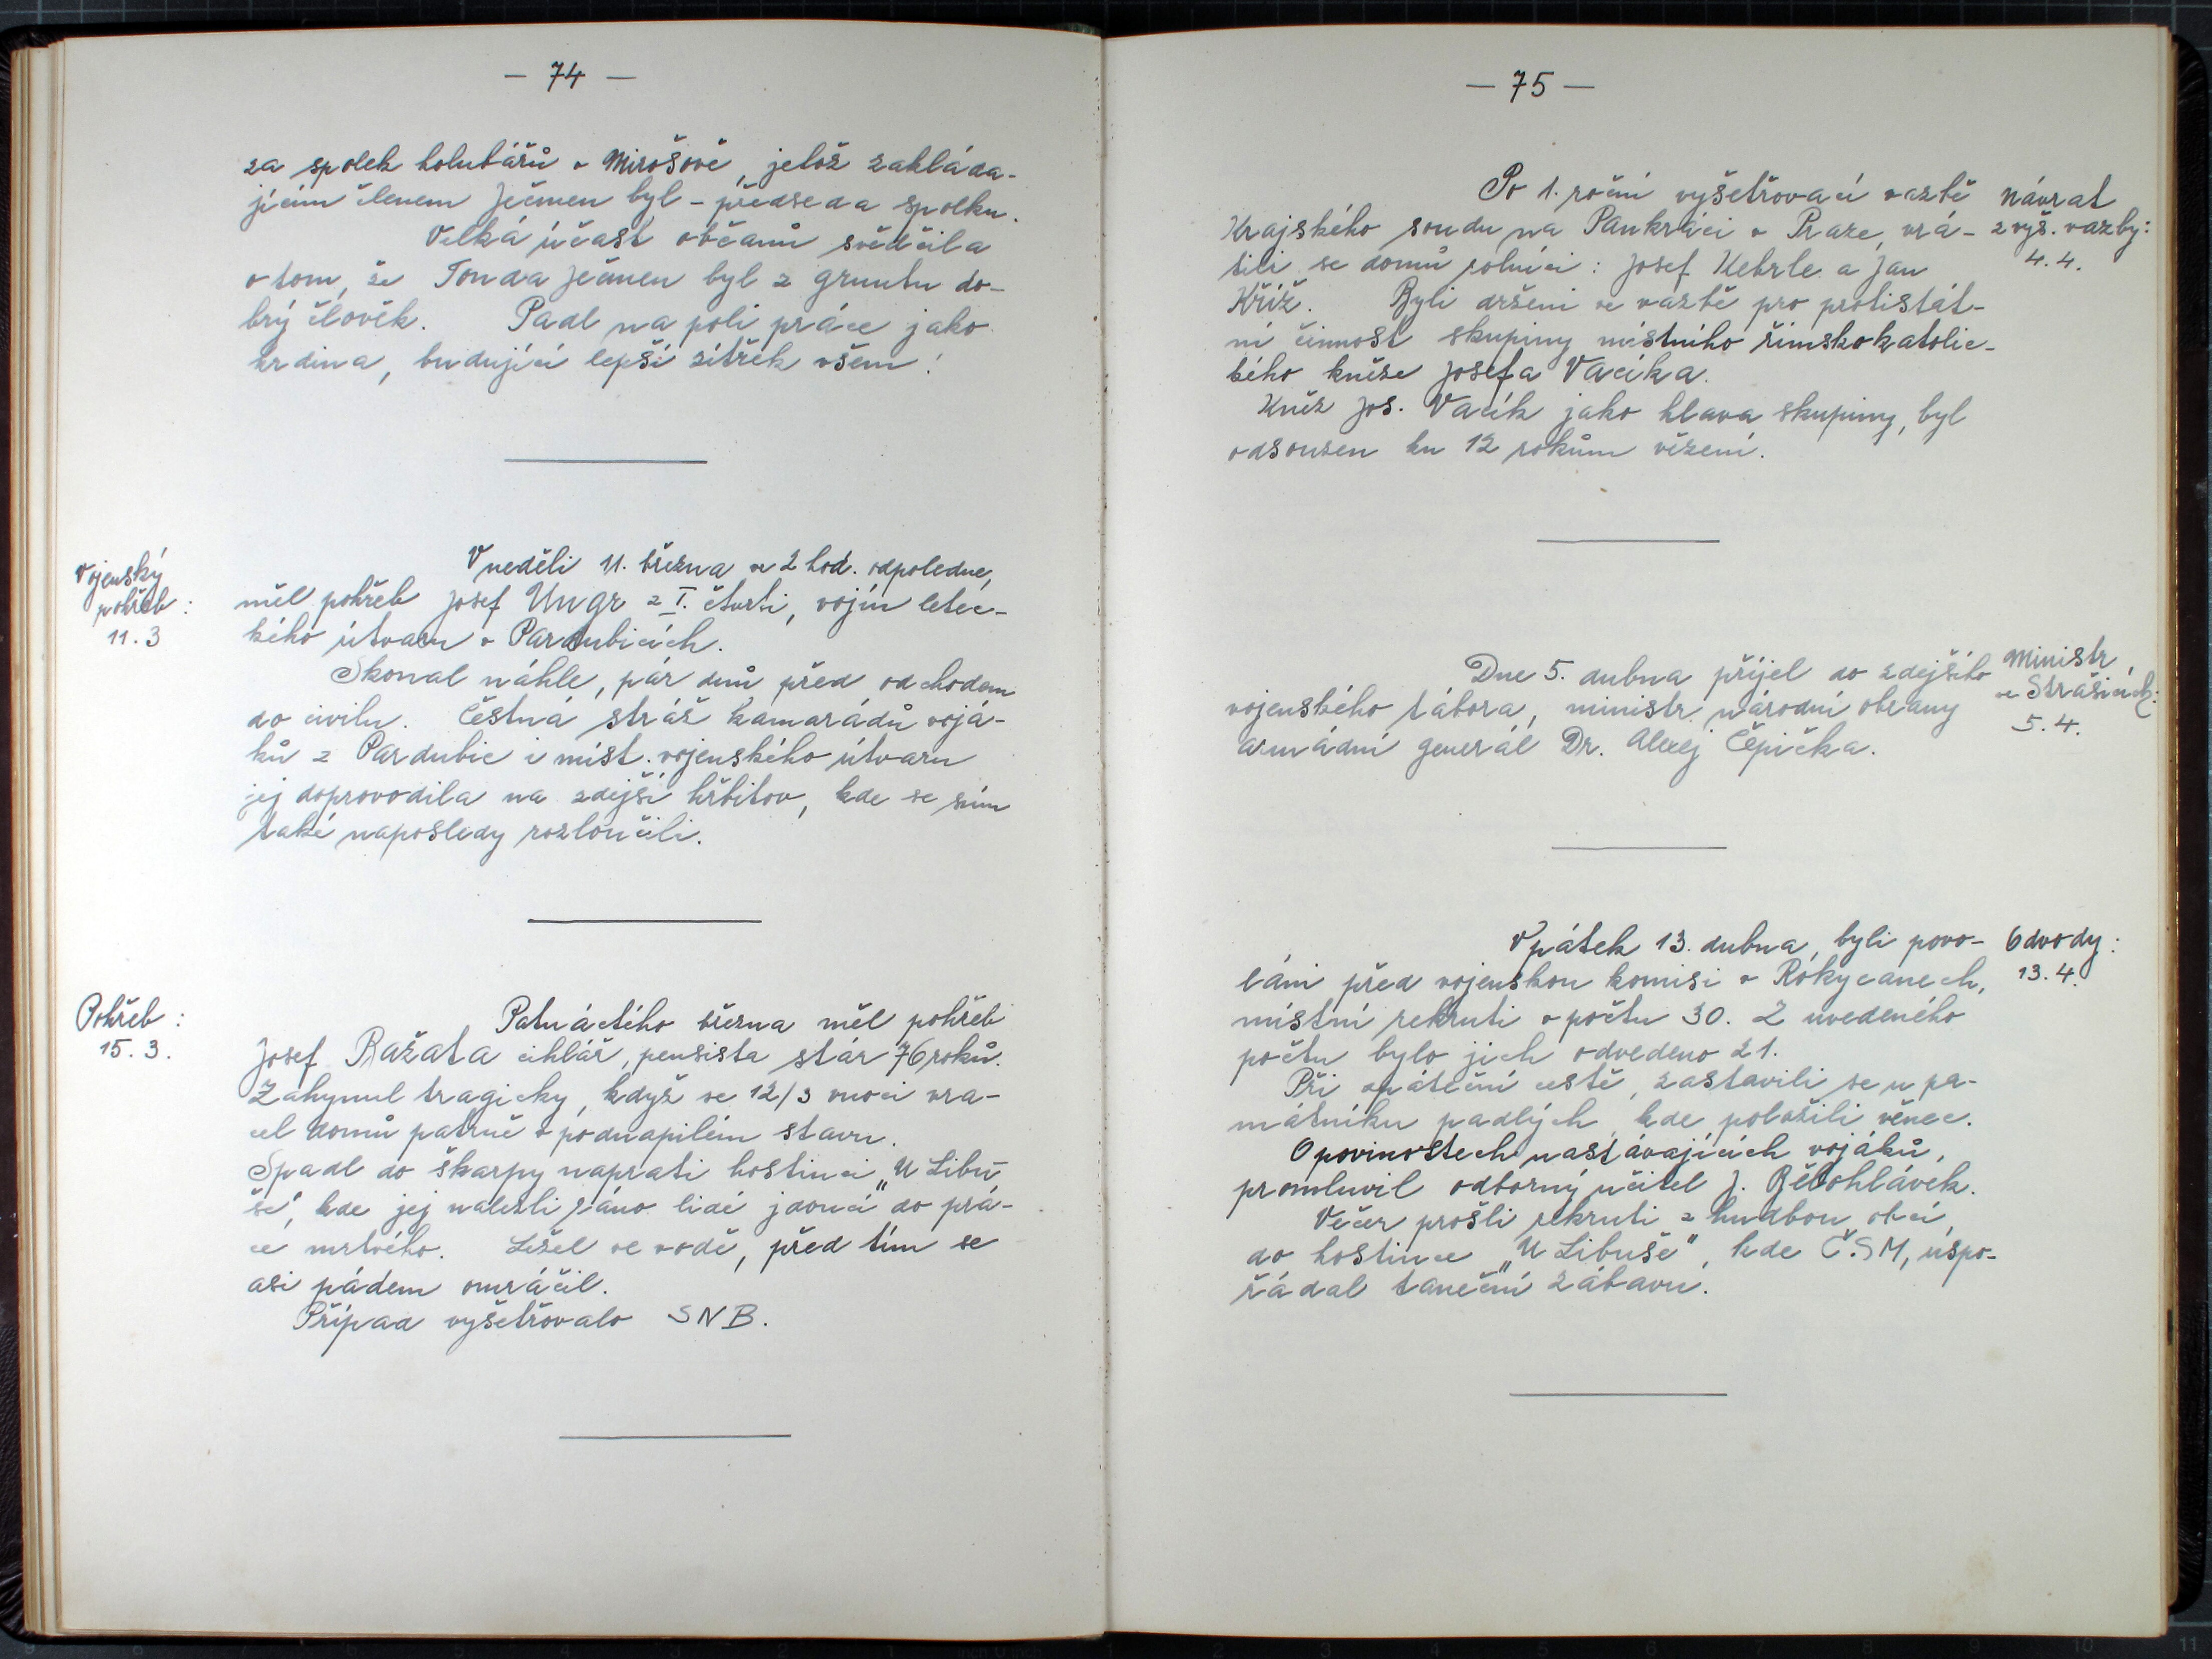 — 74 —
za spolek holubářů v Mirošově, jehož zakláda-
jícím členem Ječmen byl - předseda spolku.
Velká účast občanů svědčila
o tom, že Tonda Ječmen byl z gruntu do-
brý člověk. Padl na poli práce jako
hrdina, budující lepší zítřek všem!
Vojenský
pohřeb:
11. 3
V neděli 11. března ve 2 hod. odpoledne,
měl pohřeb Josef Ungr z I. čtvrti, vojín letec-
kého útvaru v Pardubicích.
Skonal náhle, pár dnů před odchodem
do civilu. Čestná stráž kamarádů vojá-
ků z Pardubic i míst. vojenského útvaru
jej doprovodila na zdejší hřbitov, kde se s ním
také naposledy rozloučili.
Pohřeb:
15. 3.
Patnáctého března měl pohřeb
Josef Ražata cihlář, pensista stár 76 roků.
Zahynul tragicky, když se 12/3 v noci vra-
cel domů patrně v podnapilém stavu.
Spadl do škarpy naprati hostinci „U Libu-
še", kde jej nalezli ráno lidé jdoucí do prá-
ce mrtvého. Ležel ve vodě, před tím se
asi pádem omráčil.
Případ vyšetřovalo SNB.
— 75 —
Po 1. roční vyšetřovací vazbě
Krajského soudu na Pankráci v Praze, vrá-
tili se domů rolníci: Josef Kebrle a Jan
Kříž. Byli drženi ve vazbě pro protistát-
ní činnost skupiny místního římskokatolic-
kého kněze Josefa Vacíka.
Kněz Jos. Vacík jako hlava skupiny, byl
odsouzen ku 12 rokům vězení.
Návrat
z vyš. vazby:
4. 4.
Dne 5. dubna přijel do zdejšího
vojenského tábora, ministr národní obrany
armádní generál Dr. Alexej Čepička.
Ministr
ve Strašicích:
5. 4.
V pátek 13. dubna, byli povo-
láni před vojenskou komisi v Rokycanech,
místní rekruti v počtu 30. Z uvedeného
počtu bylo jich odvedeno 21.
Při zpáteční cestě, zastavili se u pa-
mátníku padlých, kde položili věnec.
O povinostech nastávajících vojáků,
promluvil odborný učitel J. Bělohlávek.
Večer prošli rekruti s hudbou obcí,
do hostince „U Libuše", kde Č.SM, uspo-
řádal taneční zábavu.
Odvody:
13. 4.